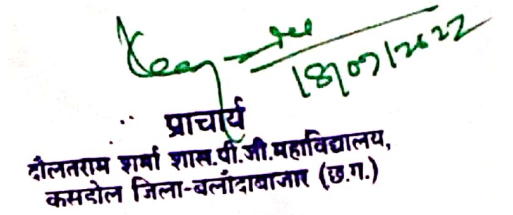 18/07/2022
प्राचार्य
दौलतराम शर्मा शास.पी.जी.महाविद्यालय,
कसडोल जिला-बलौदाबाजार (छ.ग.)